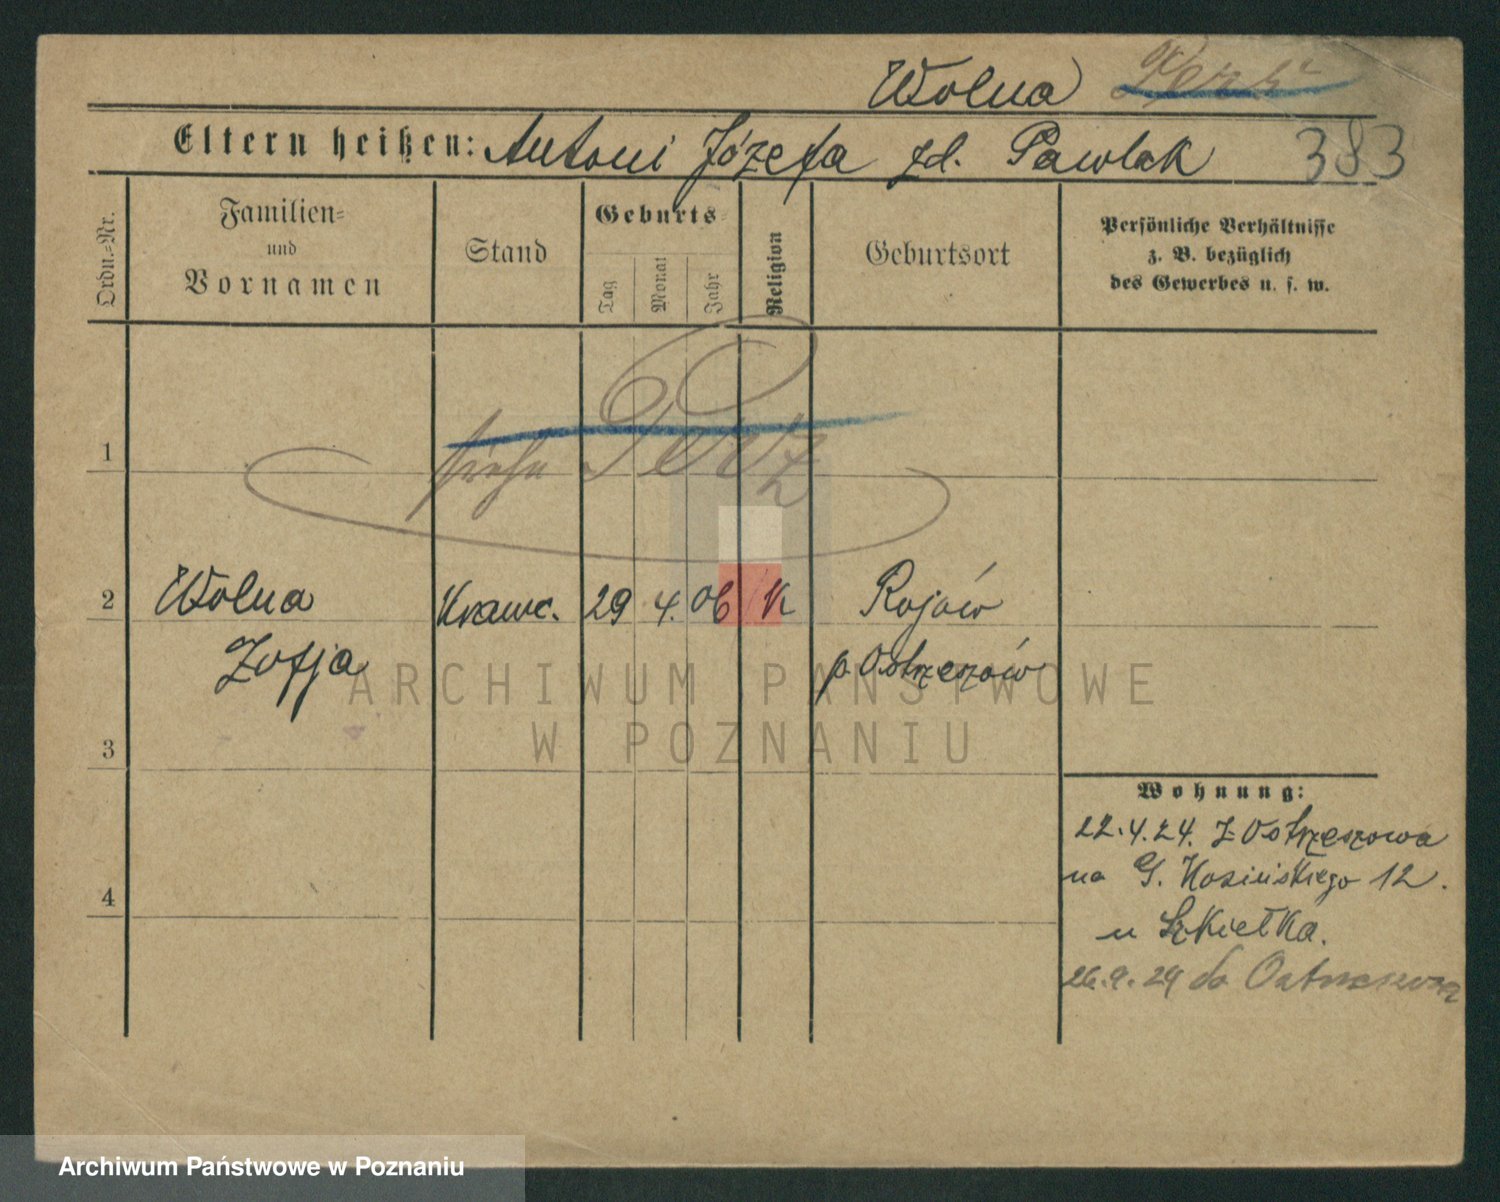 Wolna
Eltern heißen: Antoni Józefa zd. Pawlak 383
Ordn.-Nr.
Familien-
und
Vornamen
Stand
Geburts-
Tag
Monat
Jahr
Religion
Geburtsort
Persönliche Verhältnisse
z. B. bezüglich
des Gewerbes u. s. w.
siehe
1
2 Wolna Krawc. 29 4. 06 K Rojów
Zofja p. Ostrzeszów
ARCHIWUM PAŃSTWOWE
W POZNANIU
3
Wohnung:
22.4.24. z Ostrzeszowa
na G. Kosińskiego 12.
u Szkiełka.
4
26.9.29 do Ostrzeszowa
Archiwum Państwowe w Poznaniu